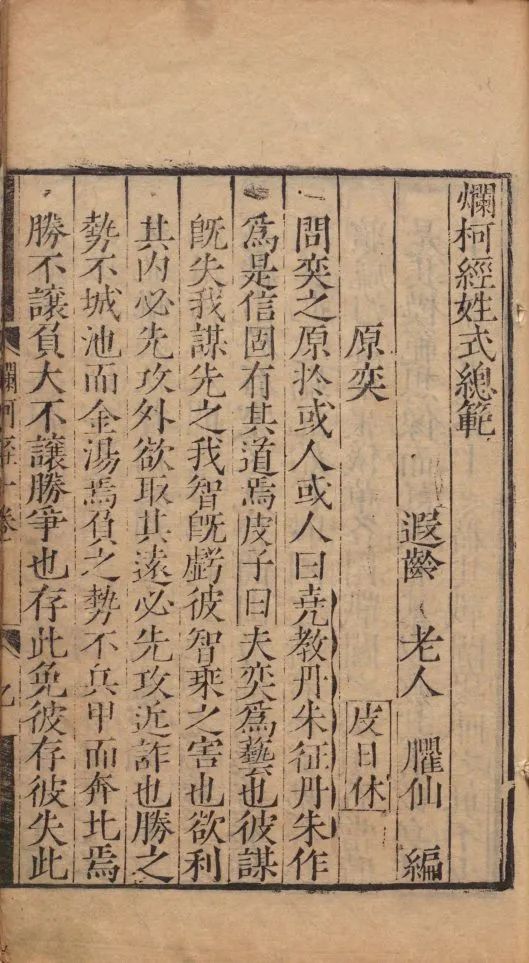 爛柯經姓式總範
遐齡 老人 臞仙 編
原奕 皮日休
問奕之原於或人或人曰堯教丹朱征丹朱作
爲是信固有其道焉皮子曰夫奕爲藝也彼謀
旣失我謀先之我智旣虧彼智乘之害也欲利
其内必先攻外欲取其遠必先攻近詐也勝之
勢不城池而金湯焉負之勢不兵甲而奔北焉
勝不讓負大不讓勝爭也存此免彼存彼失此
爛柯經一卷
九